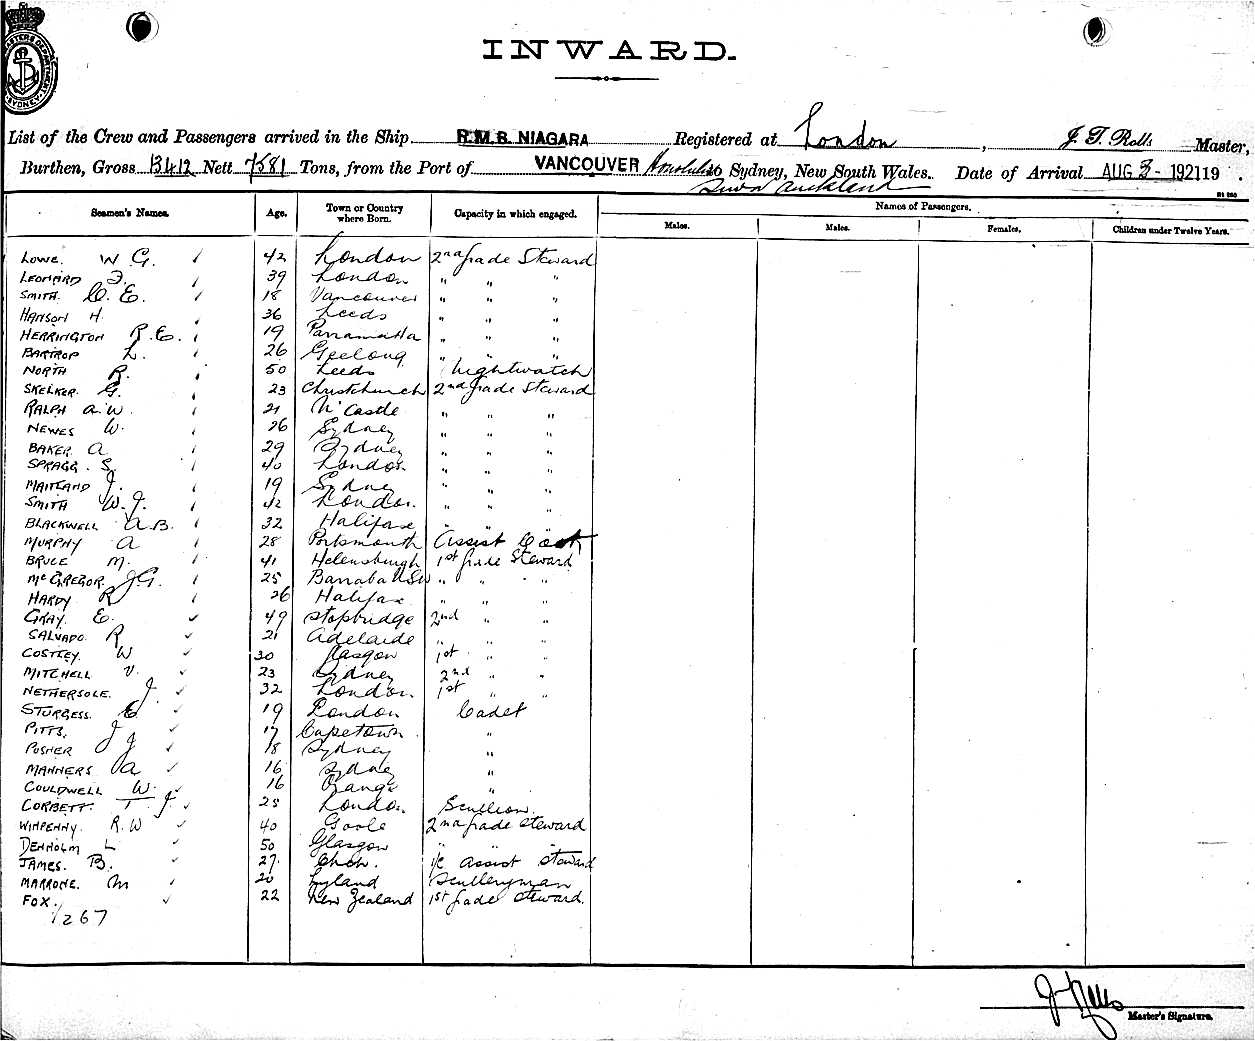 INWARD.
List of the Crew and Passengers arrived in the Ship R.M.S. NIAGARA Registered at London, J. T. Rolls Master,
Burthen, Gross 13412 Nett 7581 Tons, from the Port of VANCOUVER Honolulu to Sydney, New South Wales. Date of Arrival AUG 3 - 192119.
Suva Auckland
Seamen's Names. Age. Town or Country where Born. Capacity in which engaged. Names of Passengers.
Males. Males. Females. Children under Twelve Years.
LOWE. W G. 42 London 2nd grade Steward
LEONARD J. 39 London " " "
SMITH. C. E. 18 Vancouver " " "
HANSON H. 36 Leeds " " "
HERRINGTON R. E. 19 Parramatta " " "
BARTROP L. 26 Geelong " " "
NORTH R. 50 Leeds Nightwatch
SKELKER. G. 23 Christchurch 2nd grade Steward
RALPH A. W. 21 N'Castle " " "
NEWES W. 26 Sydney " " "
BAKER A 29 Sydney " " "
SPRAGG. S. 40 London. " " "
MAITLAND J. 19 Sydney " " "
SMITH W. J. 42 London. " " "
BLACKWELL A. B. 32 Halifax " " "
MURPHY A 28 Portsmouth Assist Cook
BRUCE M. 41 Helensburgh 1st grade Steward
McGREGOR. J. G. 25 Barraba NSW " " "
HARDY R 26 Halifax " " "
GRAY. E. 49 Stopbridge 2nd " "
SALVADO. R 21 Adelaide " " "
COSTLEY. W 30 Glasgow 1st " "
MITCHELL V. 23 Sydney 2nd " "
NETHERSOLE. J. 32 London. 1st " "
STURGESS. E 19 London Cadet
PITTS. J 17 Capetown "
PUSHER J J 18 Sydney "
MANNERS A 16 Sydney "
COULDWELL W. 16 Orange "
CORBETT. T. J. 25 London. Scullion.
WIMPENNY. R. W 40 Goole 2nd grade Steward
DENHOLM L 50 Glasgow " " "
JAMES. B. 27. i/c Assist Steward
MARRONE. M 20 Sculleryman
FOX. 22 New Zealand 1st grade Steward.
1/267
J Rolls
Master's Signature.